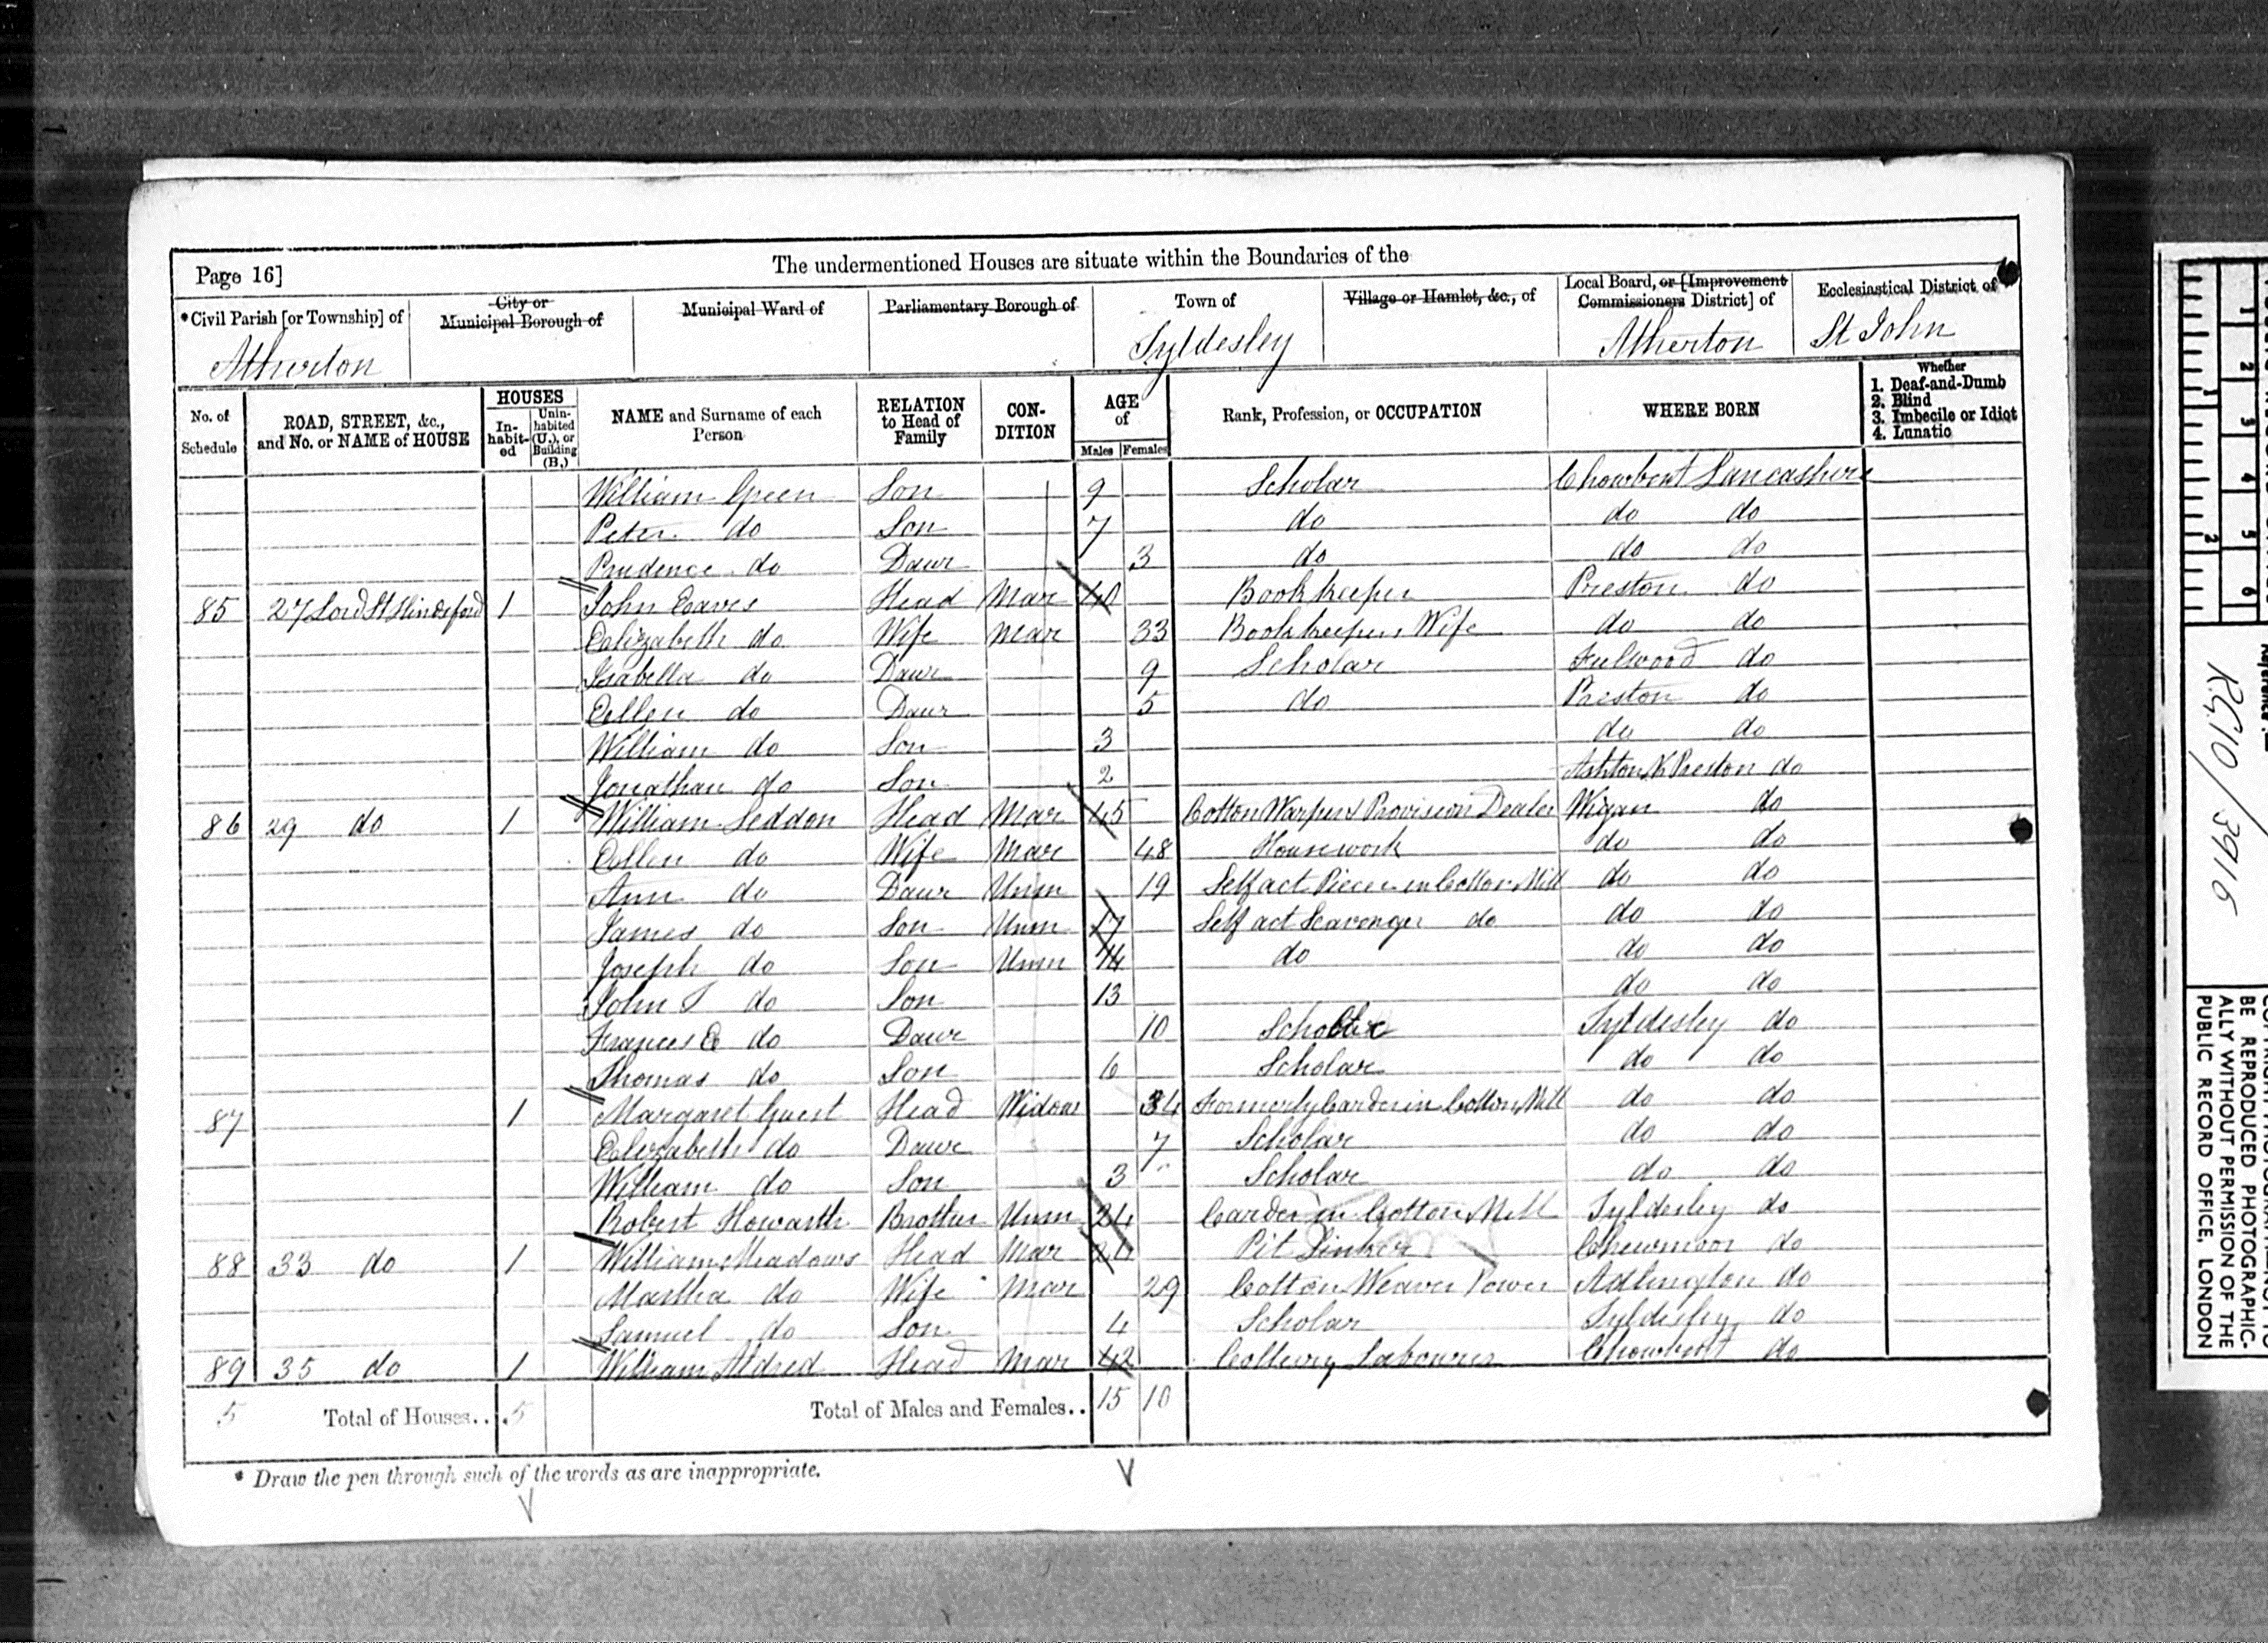 Page 16]
The undermentioned Houses are situate within the Boundaries of the
*Civil Parish [or Township] of
City or Municipal Borough of
Municipal Ward of
Parliamentary Borough of
Town of
Village or Hamlet, &c., of
Local Board, or [Improvement Commissioners District] of
Ecclesiastical District of
Atherton Tyldesley Atherton St John
No. of Schedule
ROAD, STREET, &c., and No. or NAME of HOUSE
HOUSES
Inhabited
Uninhabited (U.), or Building (B.)
NAME and Surname of each Person
RELATION to Head of Family
CONDITION
AGE of
Males Females
Rank, Profession, or OCCUPATION
WHERE BORN
Whether
1. Deaf-and-Dumb
2. Blind
3. Imbecile or Idiot
4. Lunatic
William Green Son 9 Scholar Chowbent Lancashire
Peter do Son 7 do do do
Prudence do Daur 3 do do do
85 27 Lord St Hindsford 1 John Eaves Head Mar 40 Bookkeeper Preston do
Elizabeth do Wife Mar 33 Bookkeepers Wife do do
Isabella do Daur 9 Scholar Fulwood do
Ellen do Daur 5 do Preston do
William do Son 3 do do
Jonathan do Son 2 Ashton N Preston do
86 29 do 1 William Seddon Head Mar 45 Cotton Warper & Provision Dealer Wigan do
Ellen do Wife Mar 48 Housework do do
Ann do Daur Unm 19 Self act Piecer in Cotton Mill do do
James do Son Unm 17 Self act Scavenger do do do
Joseph do Son Unm 14 do do do
John T do Son 13 do do
Frances E do Daur 10 Scholar Tyldesley do
Thomas do Son 6 Scholar do do
87 1 Margaret Guest Head Widow 34 Formerly Carder in Cotton Mill do do
Elizabeth do Daur 7 Scholar do do
William do Son 3 Scholar do do
Robert Howarth Brother Unm 24 Carder in Cotton Mill Tyldesley do
88 33 do 1 William Meadows Head Mar Pit Sinker Chewmoor do
Martha do Wife Mar 29 Cotton Weaver Power Adlington do
Samuel do Son 4 Scholar Tyldesley do
89 35 do 1 William Aldred Head Mar 42 Colliery Labourer Chowbent do
5 Total of Houses.. 5 Total of Males and Females.. 15 10
* Draw the pen through such of the words as are inappropriate.
RG10/3916
BE REPRODUCED PHOTOGRAPHIC-
ALLY WITHOUT PERMISSION OF THE
PUBLIC RECORD OFFICE, LONDON